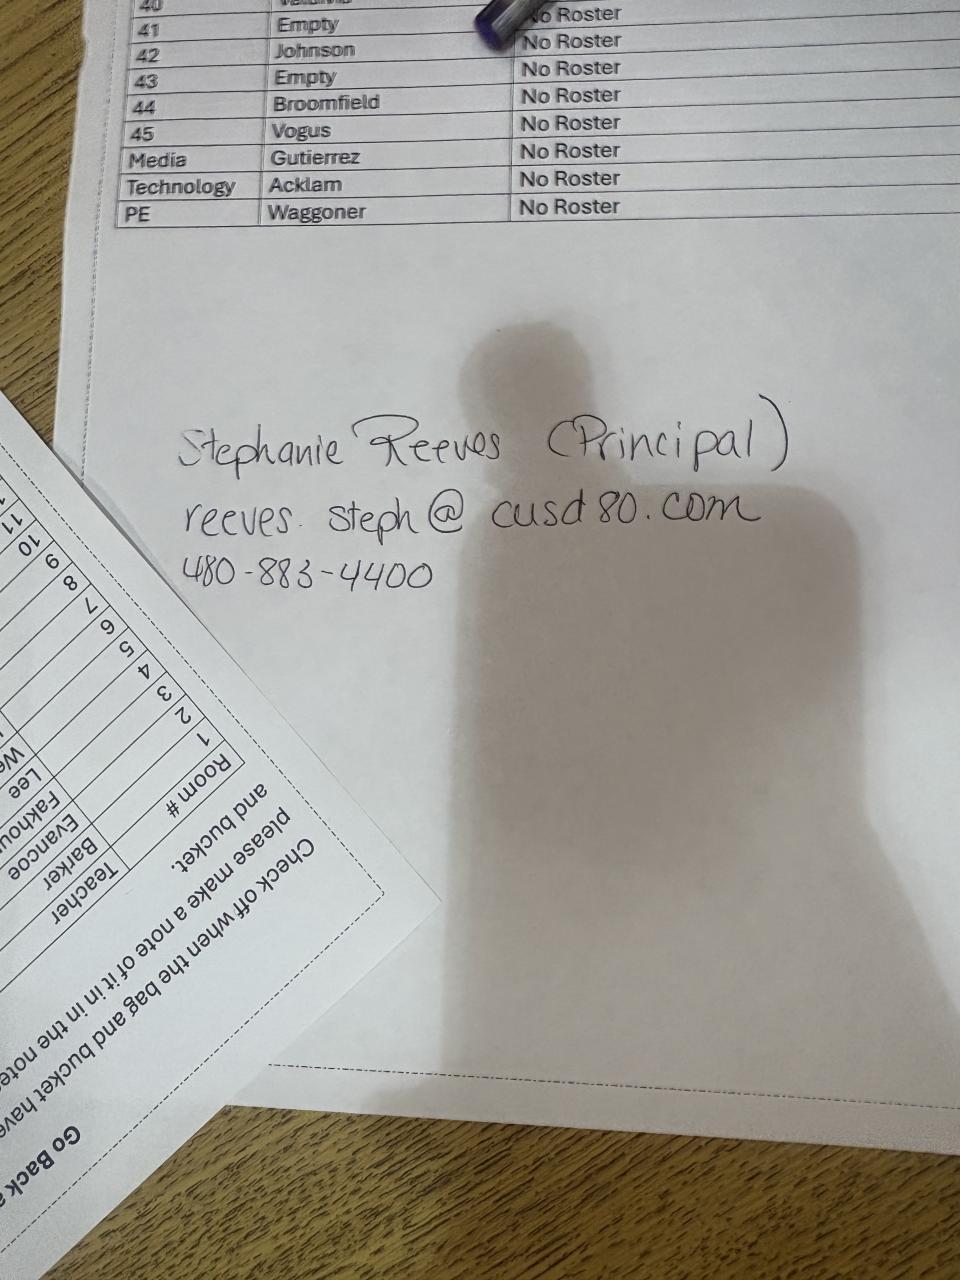 40
41 Empty No Roster
42 Johnson No Roster
43 Empty No Roster
44 Broomfield No Roster
45 Vogus No Roster
Media Gutierrez No Roster
Technology Acklam No Roster
PE Waggoner No Roster
Stephanie Reeves (Principal)
reeves.steph@cusd80.com
480-883-4400
Go Back
Check off when the bag and bucket have
please make a note of it in in the
and bucket.
Room # Teacher
1 Barker
2 Evancoe
3
4 Lee
5
6
7
8
9
10
11